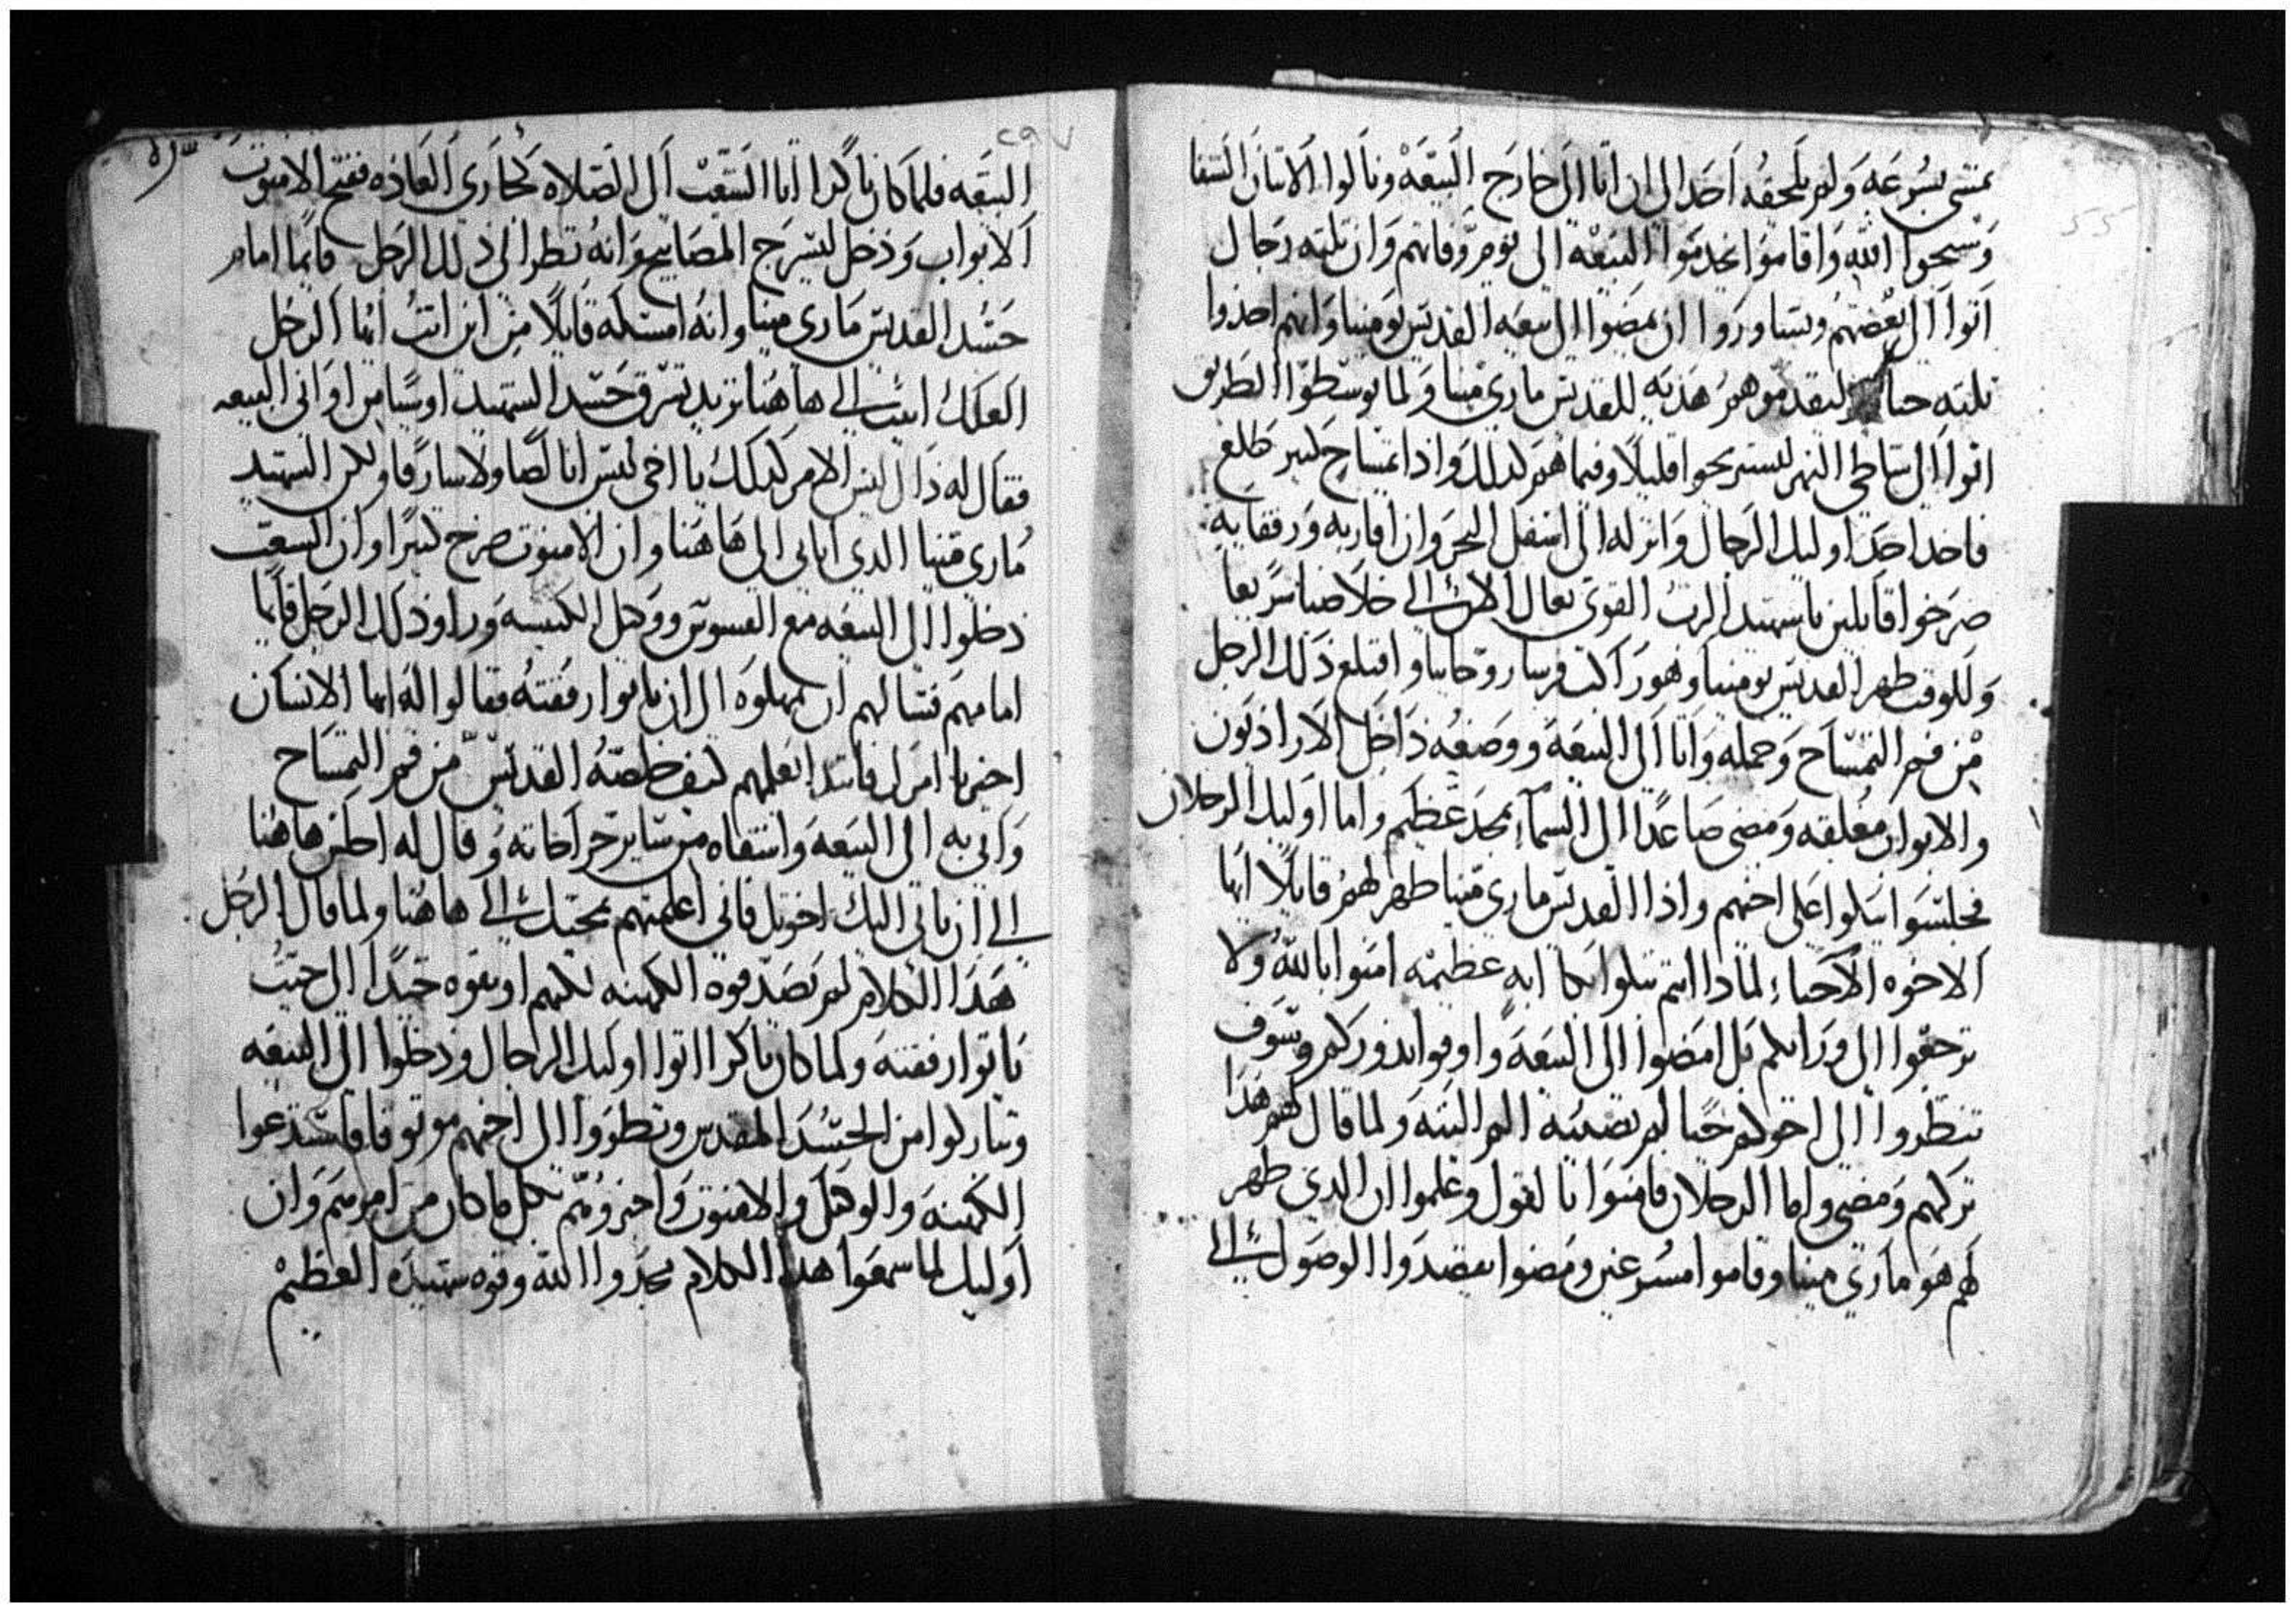 يمشي بسرعه ولم يلحقه احد الى ان اتا الى خارج البيعه ونالوا الاتنان الشفا
وسبحوا الله واقاموا يخدموا البيعه الى يوم وفاتهم وان تلته رجال
اتوا الى بعضهم وتشاوروا ان يمضوا الى بيعه القديس بومينا وانهم اخدوا
تلته ليقدموهم هديه للقديس ماري مينا ولما توسطوا الطريق
اتوا الى شاطي النهر ليستريحوا قليلا وفيما هم كدلك واذا تمساح كبير طلع
فاخد احد اوليك الرجال وانزله الى اسفل البحر وان اقاربه ورفقايه
صرخوا قايلين يا شهيد الرب القوي تعال الان الى خلاصنا سريعا
وللوقت ظهر القديس بومينا وهو راكب فرسا روحانيا واقتلع ذلك الرجل
من فم التمساح وحمله واتا الى البيعه ووضعه داخل الاراديون
والابواب مغلقه ومضى صاعدا الى السماء بمجد عظيم واما اوليك الرجلان
فجلسوا يبكوا على اخيهم واذا القديس ماري مينا ظهر لهم قايلا ايها
الاخوه الاحباء لمادا انتم تبكوا بكا ايه عظيمه امنوا بالله ولا
ترجعوا الى ورايكم بل امضوا الى البيعه واوفوا ندوركم وسوف
تنظروا الى اخوكم حيا لم يصيبه الم البته ولما قال لهم هدا
تركهم ومضى واما الرجلان فامنوا بالقول وعلموا ان الدي ظهر
لهم هو ماري مينا وقاموا مسرعين ومضوا يقصدوا الوصول الى
البيعه فلما كان باكرا اتا الشعب الى الصلاه كجاري العاده ففتح الامنوت
الابواب ودخل ليسرج المصابيح وانه نظر الى ذلك الرجل قايما امام
جسد القديس ماري مينا وانه امسكه قايلا من اين انت ايها الرجل
لعلك اتيت الى هاهنا تريد تسرق جسد الشهيد او شيا من اواني البيعه
فقال له ذاك ليس الامر كدلك يا اخي ليس انا لصا ولا سارقا ولكن الشهيد
ماري مينا الدي اتا بي الى هاهنا وان الامنوت صرخ كبيرا وان الشعب
دخلوا الى البيعه مع القسوس ووكيل الكنيسه وراو ذلك الرجل قايما
امامهم فسالهم ان يمهلوه الى ان ياتوا رفقته فقالوا له ايها الانسان
اخبرنا امرك فابتدا يعلمهم كيف خلصه القديس من فم التمساح
واتى به الى البيعه واشفاه من ساير جراحاته وقال له اجلس هاهنا
الى ان ياتي اليك اخوتك فاني اعلمتهم بمجيك الى هاهنا ولما قال الرجل
هدا الكلام لم يصدقوه الكهنه لكنهم اوثقوه جيدا الى حيث
ياتوا رفقته ولما كان باكرا اتوا اوليك الرجال ودخلوا الى البيعه
وتباركوا من الجسد المقدس ونظروا الى اخيهم موتوقا فاستدعوا
الكهنه والوكيل والامنوت واخبروهم بكل ما كان من امرهم وان
اوليك لما سمعوا هدا الكلام مجدوا الله وقوه شهيده العظيم